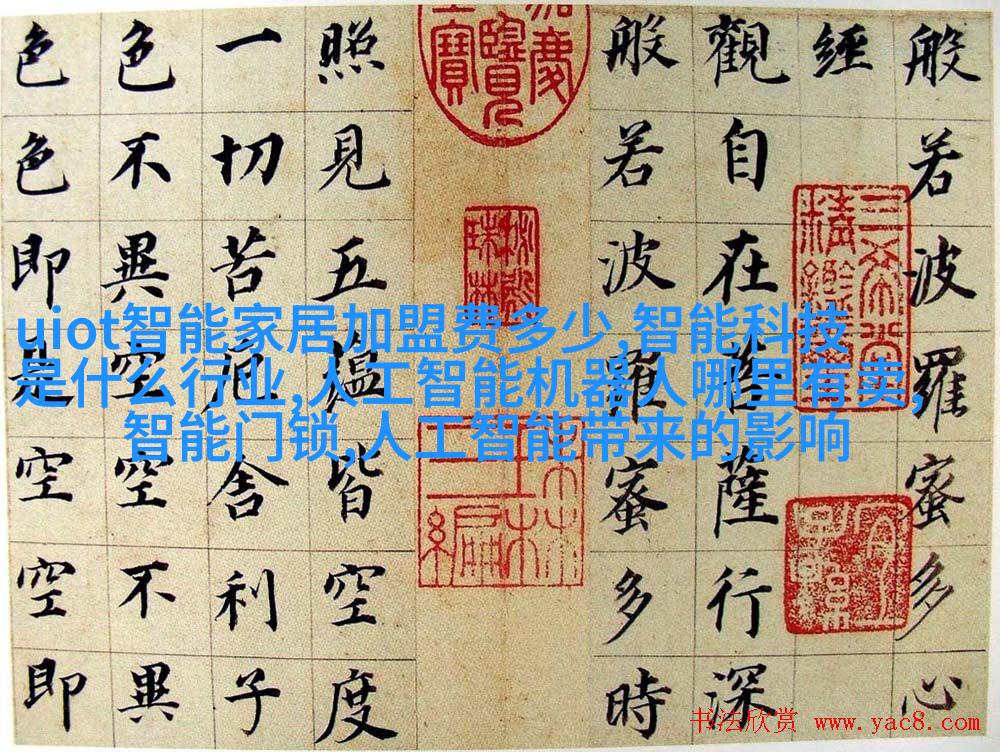 般若波羅蜜多心
經
觀自在菩薩行深
般若波羅蜜多時
照見五蘊皆空度
一切苦厄舍利子
色不異空空不異
色色即是空空即
三希堂精鑑璽
uiot智能家居加盟费多少,智能科技
是什么行业,人工智能机器人哪里有卖,
智能门锁,人工智能带来的影响
书法欣赏 www.yac8.com